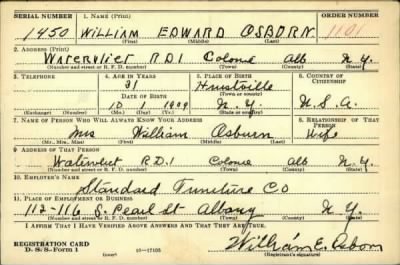 SERIAL NUMBER 1. NAME (Print) ORDER NUMBER
1450 WILLIAM EDWARD OSBORN 1101
(First) (Middle) (Last)
2. ADDRESS (Print)
Watervliet R.D.1 Colonie Alb N.Y.
(Number and street or R. F. D. number) (Town) (County) (State)
3. TELEPHONE 4. AGE IN YEARS 5. PLACE OF BIRTH 6. COUNTRY OF CITIZENSHIP
31
(Town or county)
DATE OF BIRTH
10 1 1909 N.Y. U.S.A.
(Exchange) (Number) (Mo.) (Day) (Yr.) (State or country)
7. NAME OF PERSON WHO WILL ALWAYS KNOW YOUR ADDRESS 8. RELATIONSHIP OF THAT PERSON
Mrs William Osburn Wife
(Mr., Mrs., Miss) (First) (Middle) (Last)
9. ADDRESS OF THAT PERSON
Watervliet R.D.1 Colonie Alb N.Y.
(Number and street or R. F. D. number) (Town) (County) (State)
10. EMPLOYER'S NAME
Standard Furniture Co
11. PLACE OF EMPLOYMENT OR BUSINESS
112-116 S. Pearl St Albany N.Y.
(Number and street or R. F. D. number) (Town) (County) (State)
I AFFIRM THAT I HAVE VERIFIED ABOVE ANSWERS AND THAT THEY ARE TRUE.
REGISTRATION CARD
D. S. S. Form 1 (over) 16-17105
William E. Osborn
(Registrant's signature)